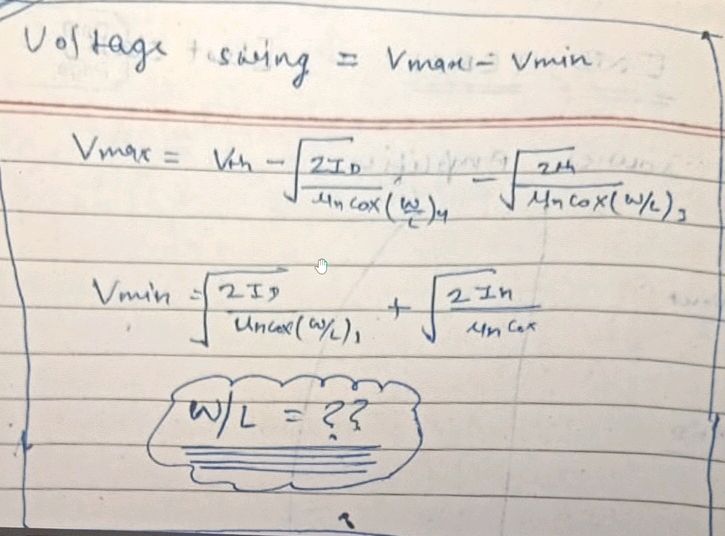 Voltage swing = Vmax - Vmin
Vmax = Vth - √(2ID / μn Cox (W/L)4) - √(/ μn Cox (W/L)3)
Vmin = √(2ID / μn Cox (W/L)1) + √(2I / μn Cox)
W/L = ??